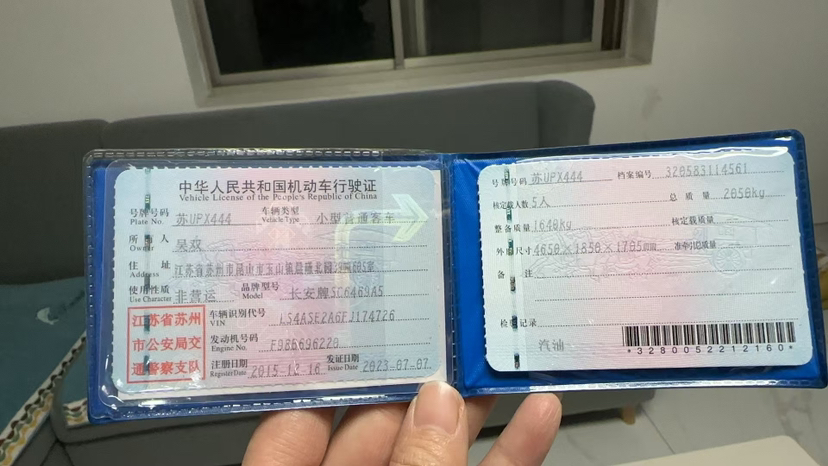 中华人民共和国机动车行驶证
Vehicle License of the People's Republic of China
号牌号码 苏UPX444 车辆类型 小型普通客车
Plate No. Vehicle Type
所有人 吴双
Owner
住址 江苏省苏州市昆山市玉山镇
Address
使用性质 非营运 品牌型号 长安牌SC6469A5
Use Character Model
江苏省苏州
市公安局交
通警察支队
车辆识别代号 LS4ASE2A6FJ174726
VIN
发动机号码 F9B6696220
Engine No.
注册日期 2015-12-16 发证日期 2023-07-07
Register Date Issue Date
号牌号码 苏UPX444 档案编号 320583114561
核定载人数 5人 总质量 2050kg
整备质量 1640kg 核定载质量
外廓尺寸 4650×1850×1705mm 准牵引总质量
备注
检验记录
汽油
*3280052212160*